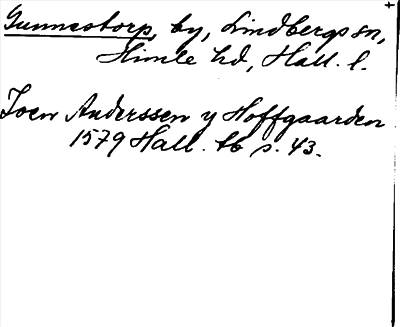 Gunnestorp, by, Lindbergs sn,
Himle hd, Hall. l.
Joen Anderssen y Hoffgaarden
1579 Hall. tb s. 43.